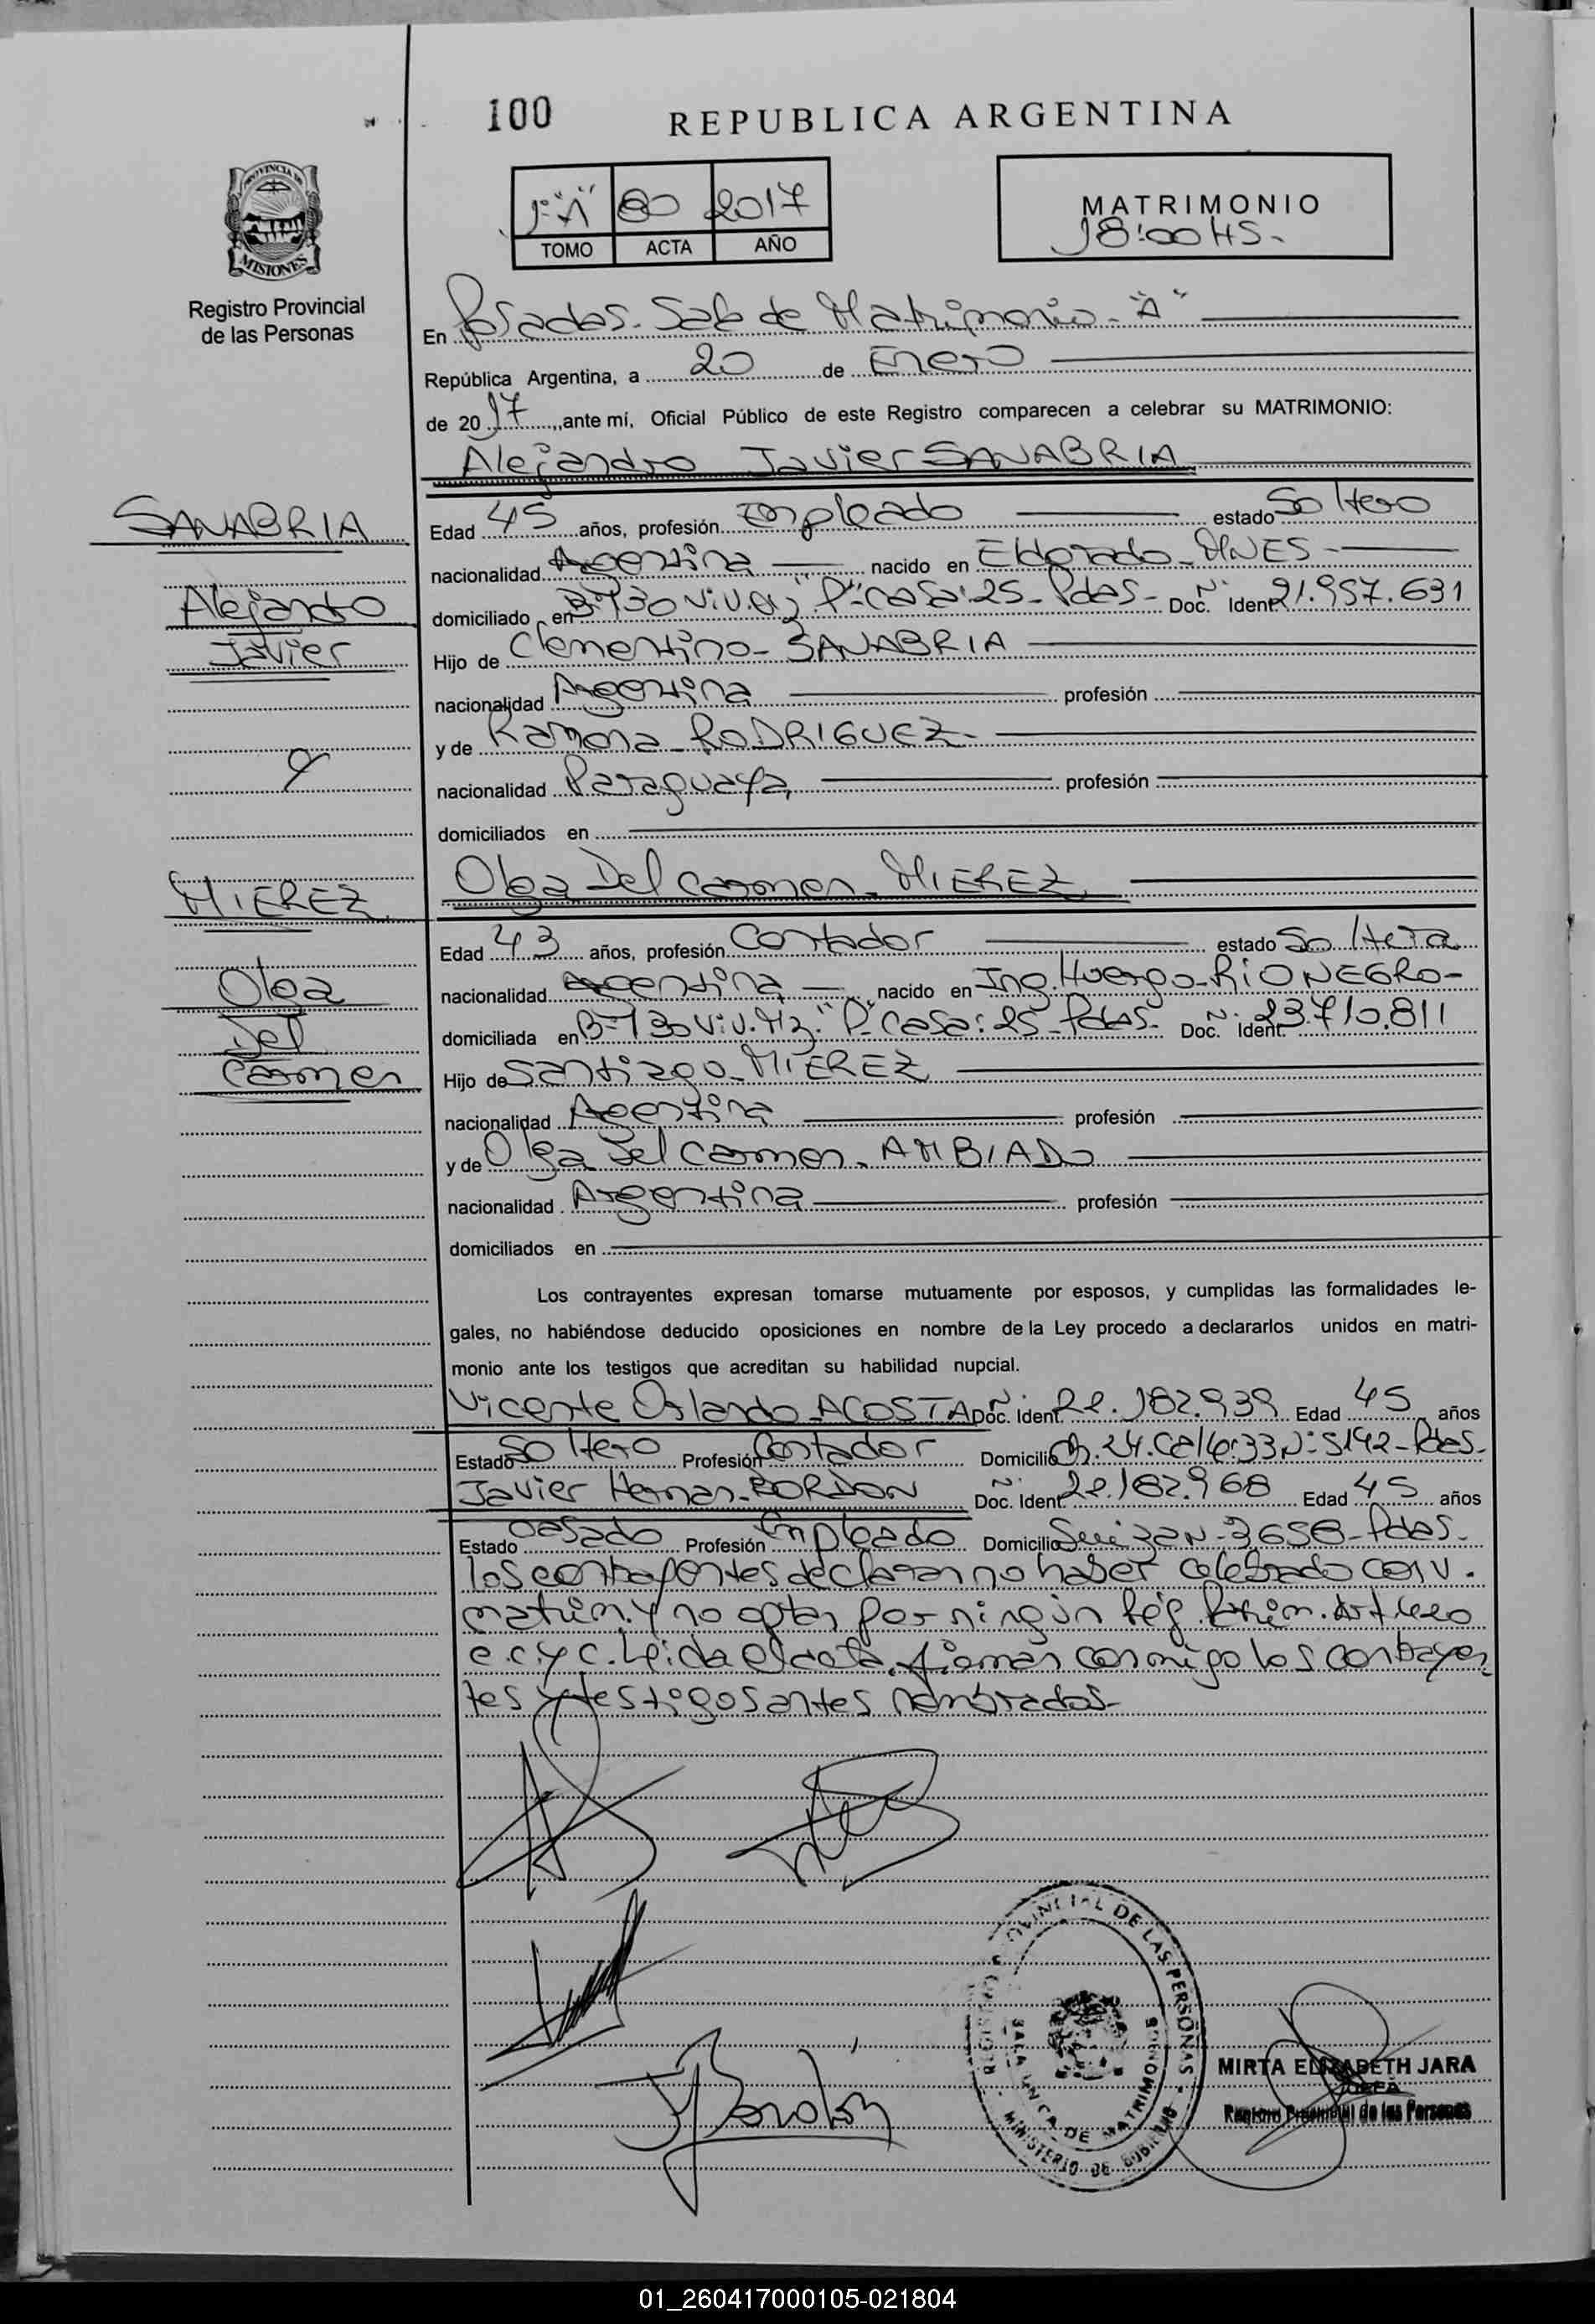 100
REPUBLICA ARGENTINA
PROVINCIA DE
MISIONES
Registro Provincial
de las Personas
1º "A" 80 2017
TOMO ACTA AÑO
MATRIMONIO
18:00 HS.-
En Posadas. Sala de Matrimonio - "A"
República Argentina, a 20 de Enero
de 2017, ante mí, Oficial Público de este Registro comparecen a celebrar su MATRIMONIO:
Alejandro Javier SANABRIA
SANABRIA
Alejandro
Javier
Edad 45 años, profesión Empleado estado Soltero
nacionalidad Argentina nacido en Eldorado - MNES -
domiciliado en B-730 Viv. Mz "P" casa: 25 - Pdas - Doc. Nº Ident. 21.957.631
Hijo de Clementino - SANABRIA
nacionalidad Argentina profesión
y de Ramona - RODRIGUEZ -
nacionalidad Paraguaya profesión
domiciliados en
y
MIEREZ
Olga
Del
Carmen
Olga Del Carmen - MIEREZ
Edad 43 años, profesión Contador estado Soltera
nacionalidad Argentina nacido en Ing. Huergo - RIO NEGRO -
domiciliada en B-730 Viv. Mz. "P" Casa: 25 - Pdas - Doc. Nº Ident. 23.710.811
Hijo de Santiago - MIEREZ
nacionalidad Argentina profesión
y de Olga Del Carmen - AMBIADO
nacionalidad Argentina profesión
domiciliados en
Los contrayentes expresan tomarse mutuamente por esposos, y cumplidas las formalidades le-
gales, no habiéndose deducido oposiciones en nombre de la Ley procedo a declararlos unidos en matri-
monio ante los testigos que acreditan su habilidad nupcial.
Vicente Orlando - ACOSTA Doc. Nº Ident. 22.182.939 Edad 45 años
Estado Soltero Profesión Contador Domicilio Ch. 24. Calle: 33 Nº 5142 - Pdas -
Javier Hernan - BORDON Doc. Nº Ident. 22.182.968 Edad 45 años
Estado Casado Profesión Empleado Domicilio Suiza N - 3658 - Pdas -
los contrayentes declaran no haber celebrado conv.
matrim. y no optan por ningún Rég. Patrim. Art 420
C. C. y C. Leida el acta, firman conmigo los contrayen
tes y testigos antes nombrados -
J Bordón
PROVINCIAL DE LAS PERSONAS
SALA UNICA DE MATRIMONIOS
MINISTERIO DE GOBIERNO
MIRTA ELIZABETH JARA
JEFA
Registro Provincial de las Personas
01_260417000105-021804